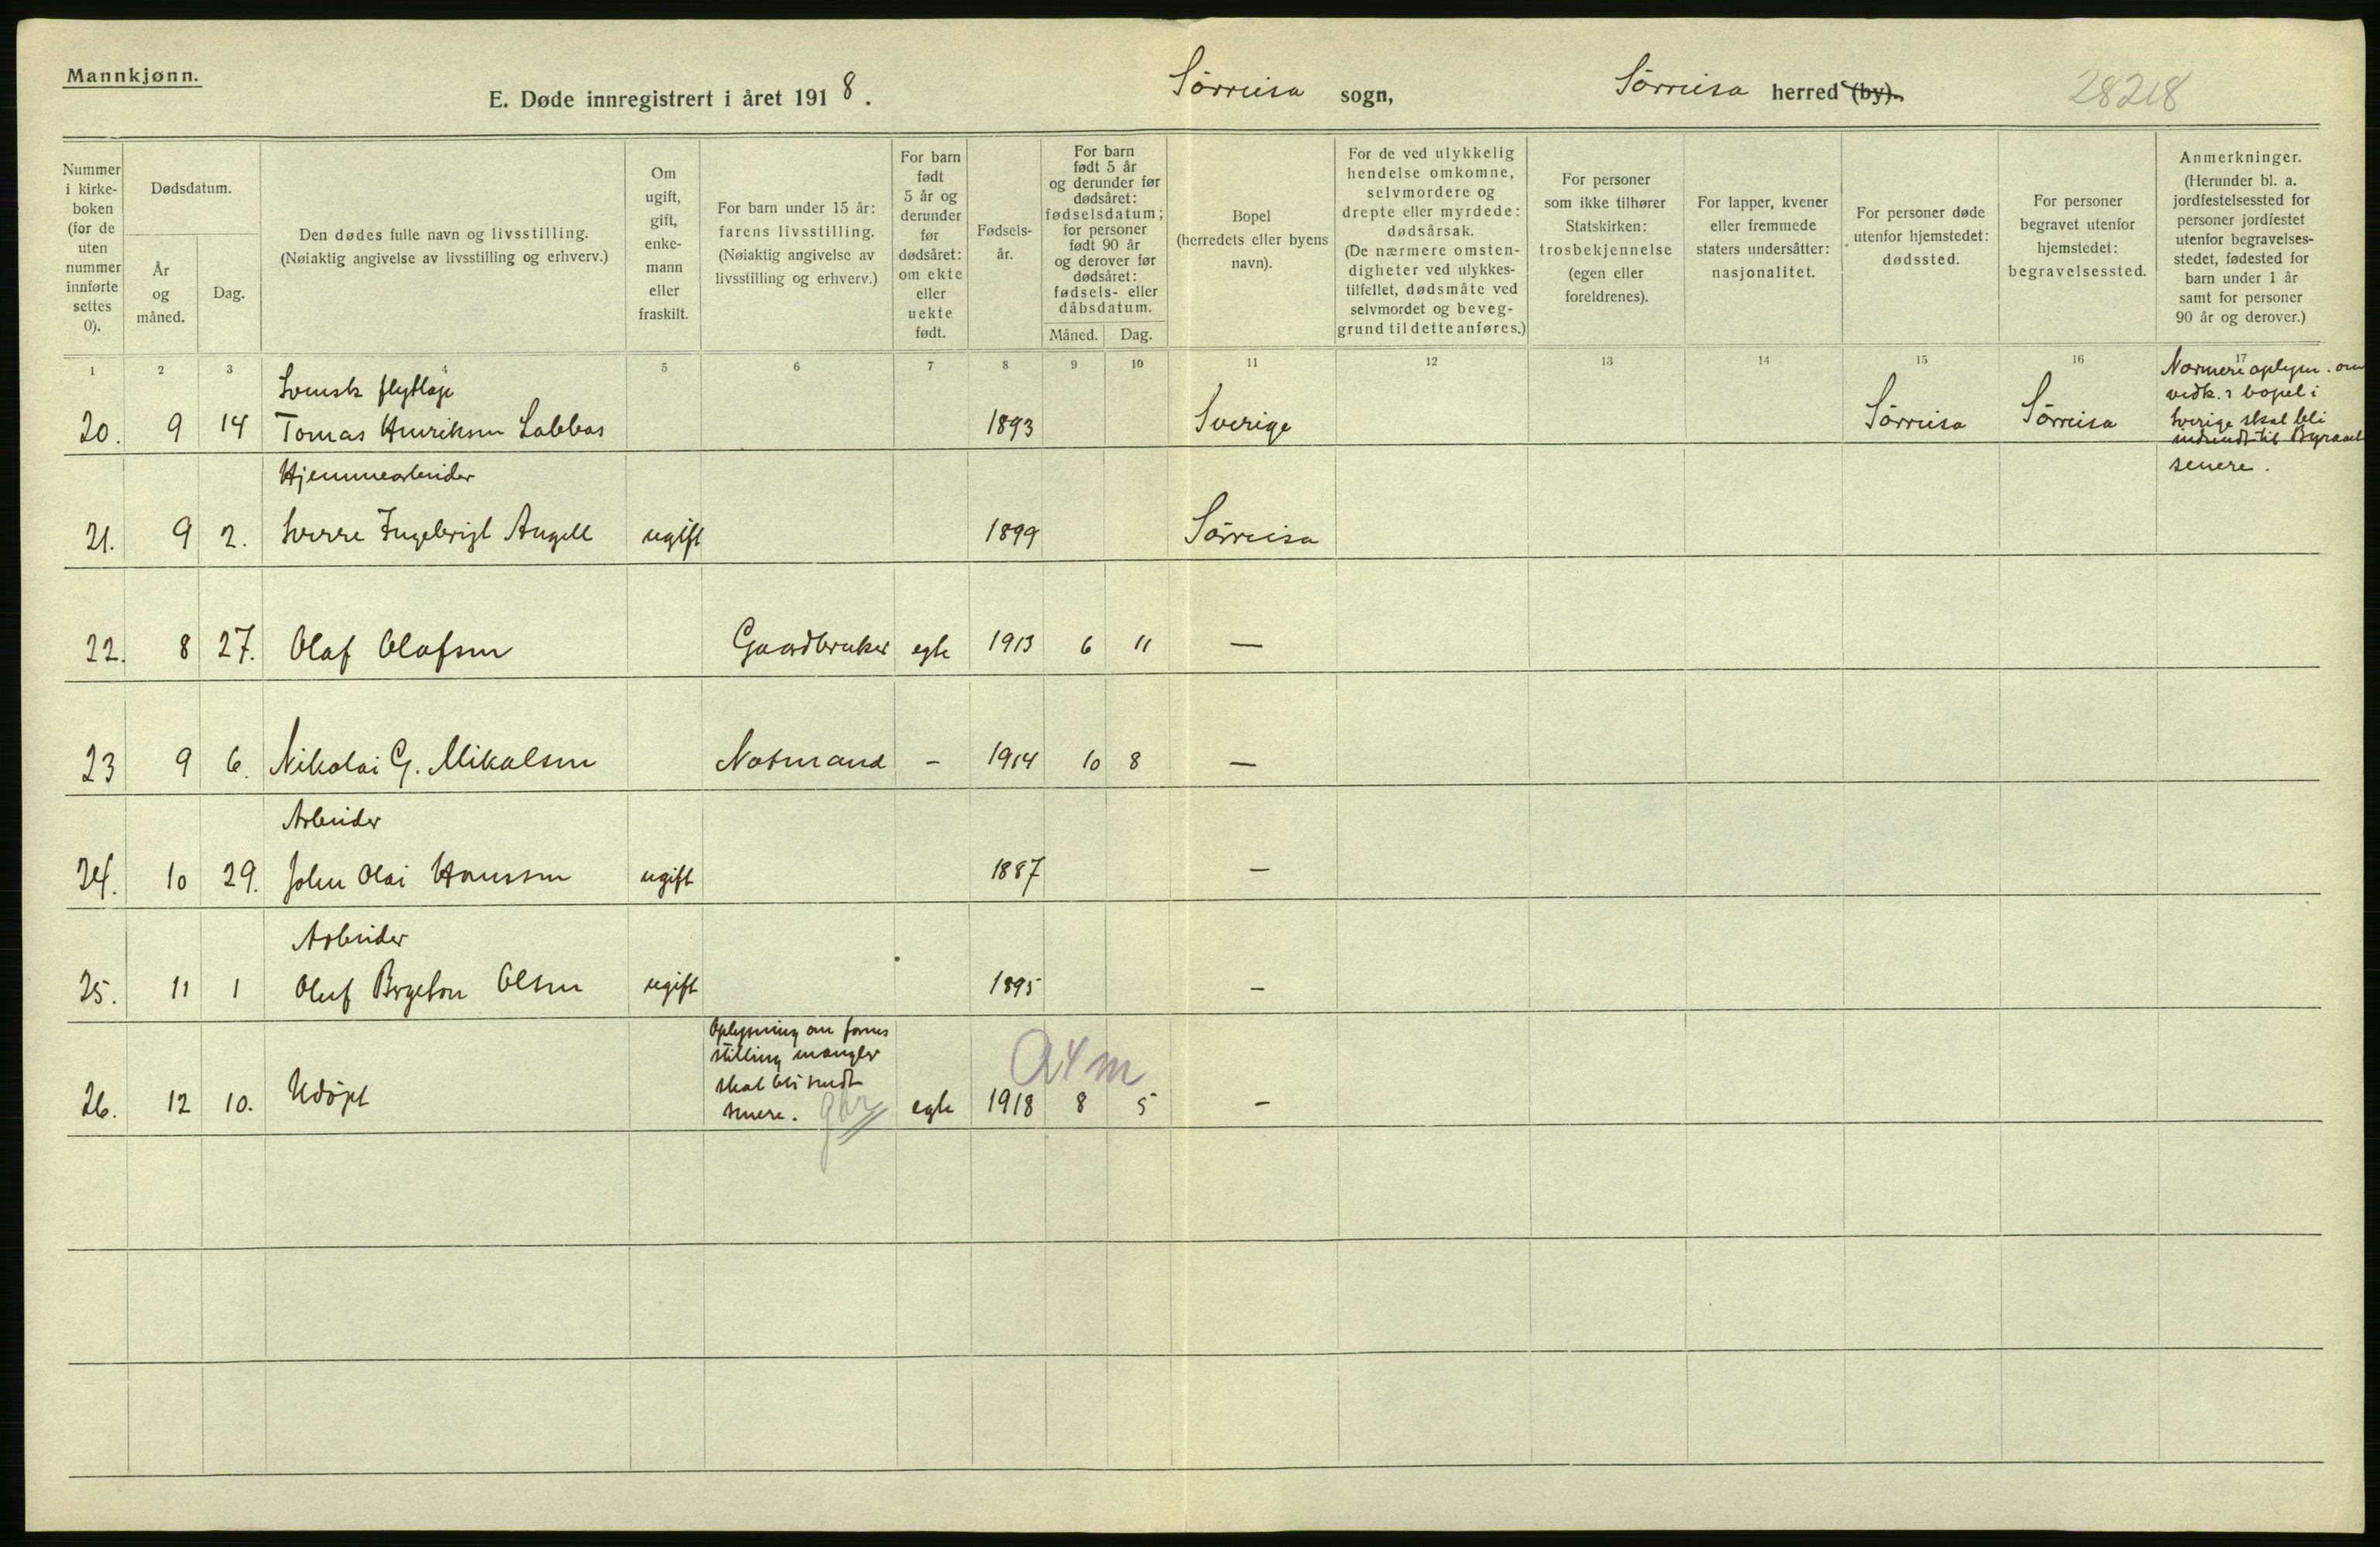 Mannkjønn.
E. Døde innregistrert i året 1918. Sörreisa sogn, Sörreisa herred (by). 28218
Nummer i kirke-boken (for de uten nummer innførte settes 0).
Dødsdatum.
År og måned.
Dag.
Den dødes fulle navn og livsstilling.
(Nøiaktig angivelse av livsstilling og erhverv.)
Om ugift, gift, enke-mann eller fraskilt.
For barn under 15 år: farens livsstilling.
(Nøiaktig angivelse av livsstilling og erhverv.)
For barn født 5 år og derunder før dødsåret: om ekte eller uekte født.
Fødsels-år.
For barn født 5 år og derunder før dødsåret: fødselsdatum; for personer født 90 år og derover før dødsåret: fødsels- eller dåbsdatum.
Måned. Dag.
Bopel (herredets eller byens navn).
For de ved ulykkelig hendelse omkomne, selvmordere og drepte eller myrdede: dødsårsak.
(De nærmere omsten-digheter ved ulykkes-tilfellet, dødsmåte ved selvmordet og beveg-grund til dette anføres.)
For personer som ikke tilhører Statskirken: trosbekjennelse (egen eller foreldrenes).
For lapper, kvener eller fremmede staters undersåtter: nasjonalitet.
For personer døde utenfor hjemstedet: dødssted.
For personer begravet utenfor hjemstedet: begravelsessted.
Anmerkninger.
(Herunder bl. a. jordfestelsessted for personer jordfestet utenfor begravelses-stedet, fødested for barn under 1 år samt for personer 90 år og derover.)
1 2 3 4 5 6 7 8 9 10 11 12 13 14 15 16 17
Svensk flytlap
20. 9 14 Tomas Henriksen Labbas 1893 Sverige Sörreisa Sörreisa
Nærmere oplysn. om
vedk.s bopel i
Sverige skal bli
indsendt til Byraaet
senere.
Hjemmearbeider
21. 9 2. Sverre Ingebrigt Angell ugift 1899 Sörreisa
22. 8 27. Olaf Olafsen Gaardbruker egte 1913 6 11 —
23 9 6. Nikolai G. Mikalsen Notmand - 1914 10 8 —
Arbeider
24. 10 29. John Olai Hanssen ugift 1887 —
Arbeider
25. 11 1 Oluf Bergeton Olsen ugift 1895 -
Oplysning om farens
stilling mangler
skal bli sendt
senere. gbr
a 4 m
26. 12 10. Udöpt egte 1918 8 5 -